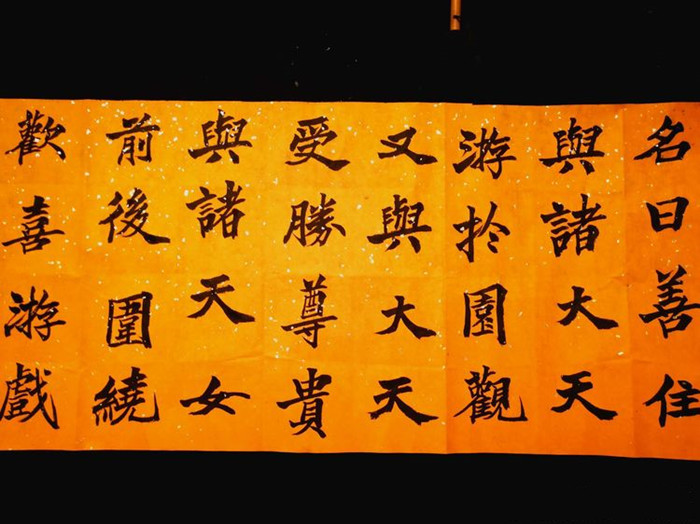 名曰善住
與諸大天
游於園觀
又與大天
受勝尊貴
與諸天女
前後圍繞
歡喜游戲